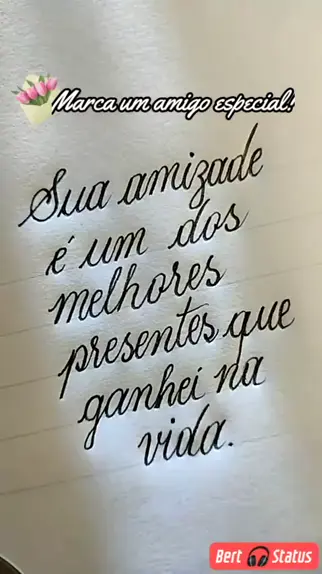 Marca um amigo especial!
Sua amizade
é um dos
melhores
presentes que
ganhei na
vida.
Bert Status